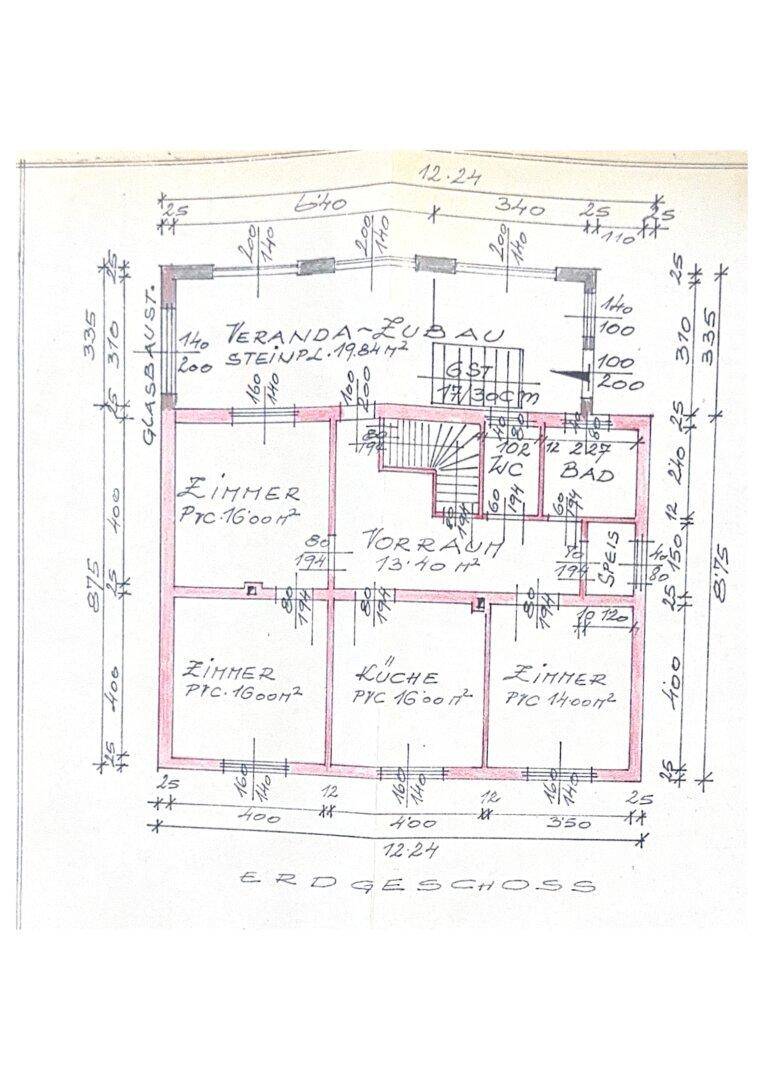 12.24
25 640 340 25 25
110
200 140
200 140
200 140
25
310
25
335
GLASBAUST.
140
200
VERANDA-ZUBAU
STEINPL. 19,84 m²
140
100
GST
17/30cm
100
200
25
310
335
160 140
100 200
80
194
40 80
80
25
102 12 227
WC BAD
240
ZIMMER
PVC. 16'00 m²
60 194
60 194
80 194
12
400
VORRAUM
13'40 m²
80
194
70
194
SPEIS
40
80
150
875
875
25
80 194
80 194
80 194
10 120
25
ZIMMER
PVC. 16'00 m²
KÜCHE
PVC 16'00 m²
ZIMMER
PVC 14'00 m²
400
400
25
160 140
160 140
160 140
25
25 12 12 25
400 4'00 3'50
12.24
ERDGESCHOSS